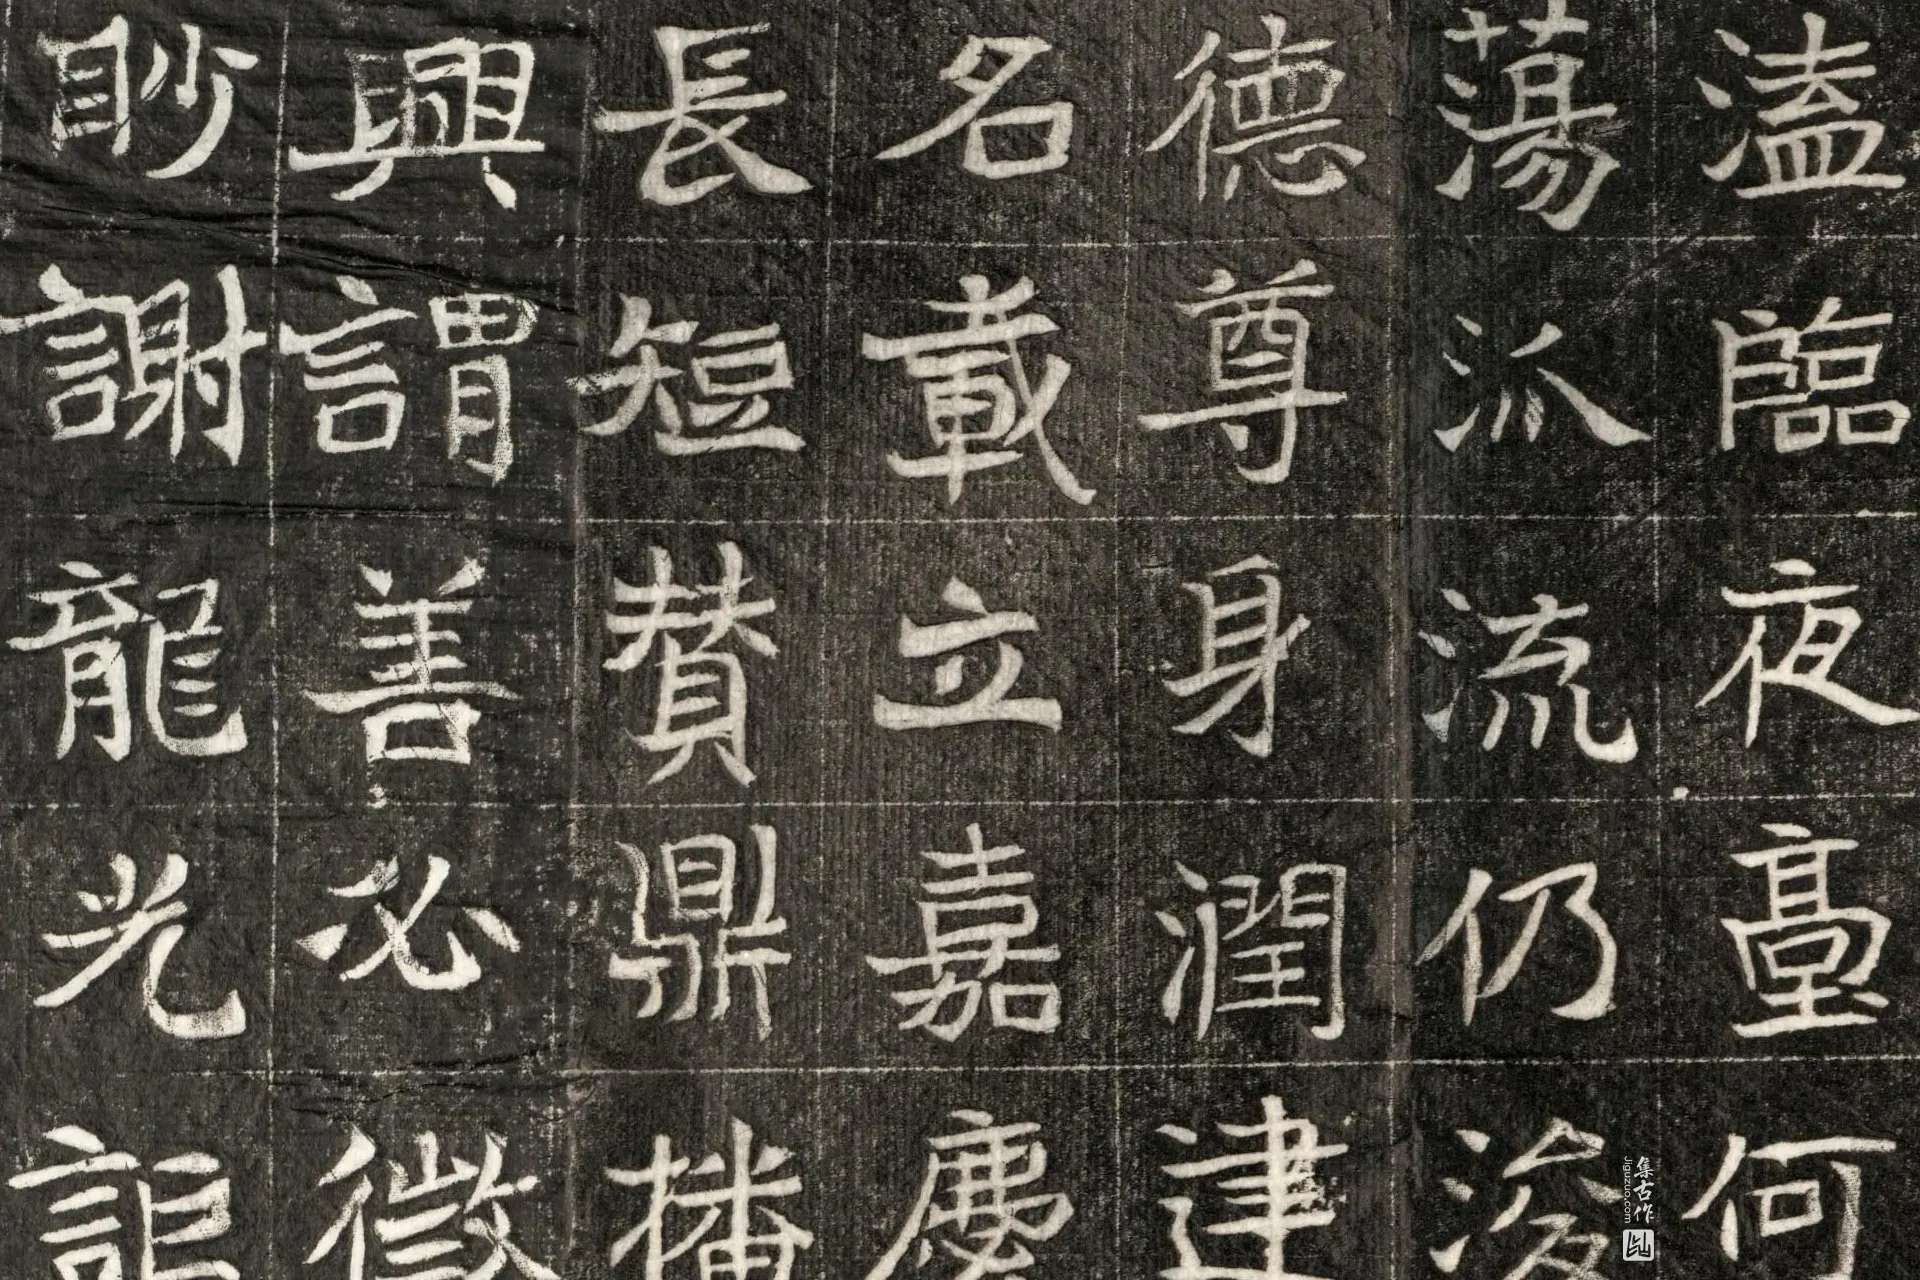 溘臨夜臺何
蕩派流仍浚
德尊身潤建
名載立嘉慶
長短贊鼎播
興謂善必徵
眇謝龍光詎
集古作
Jiguzuo.com